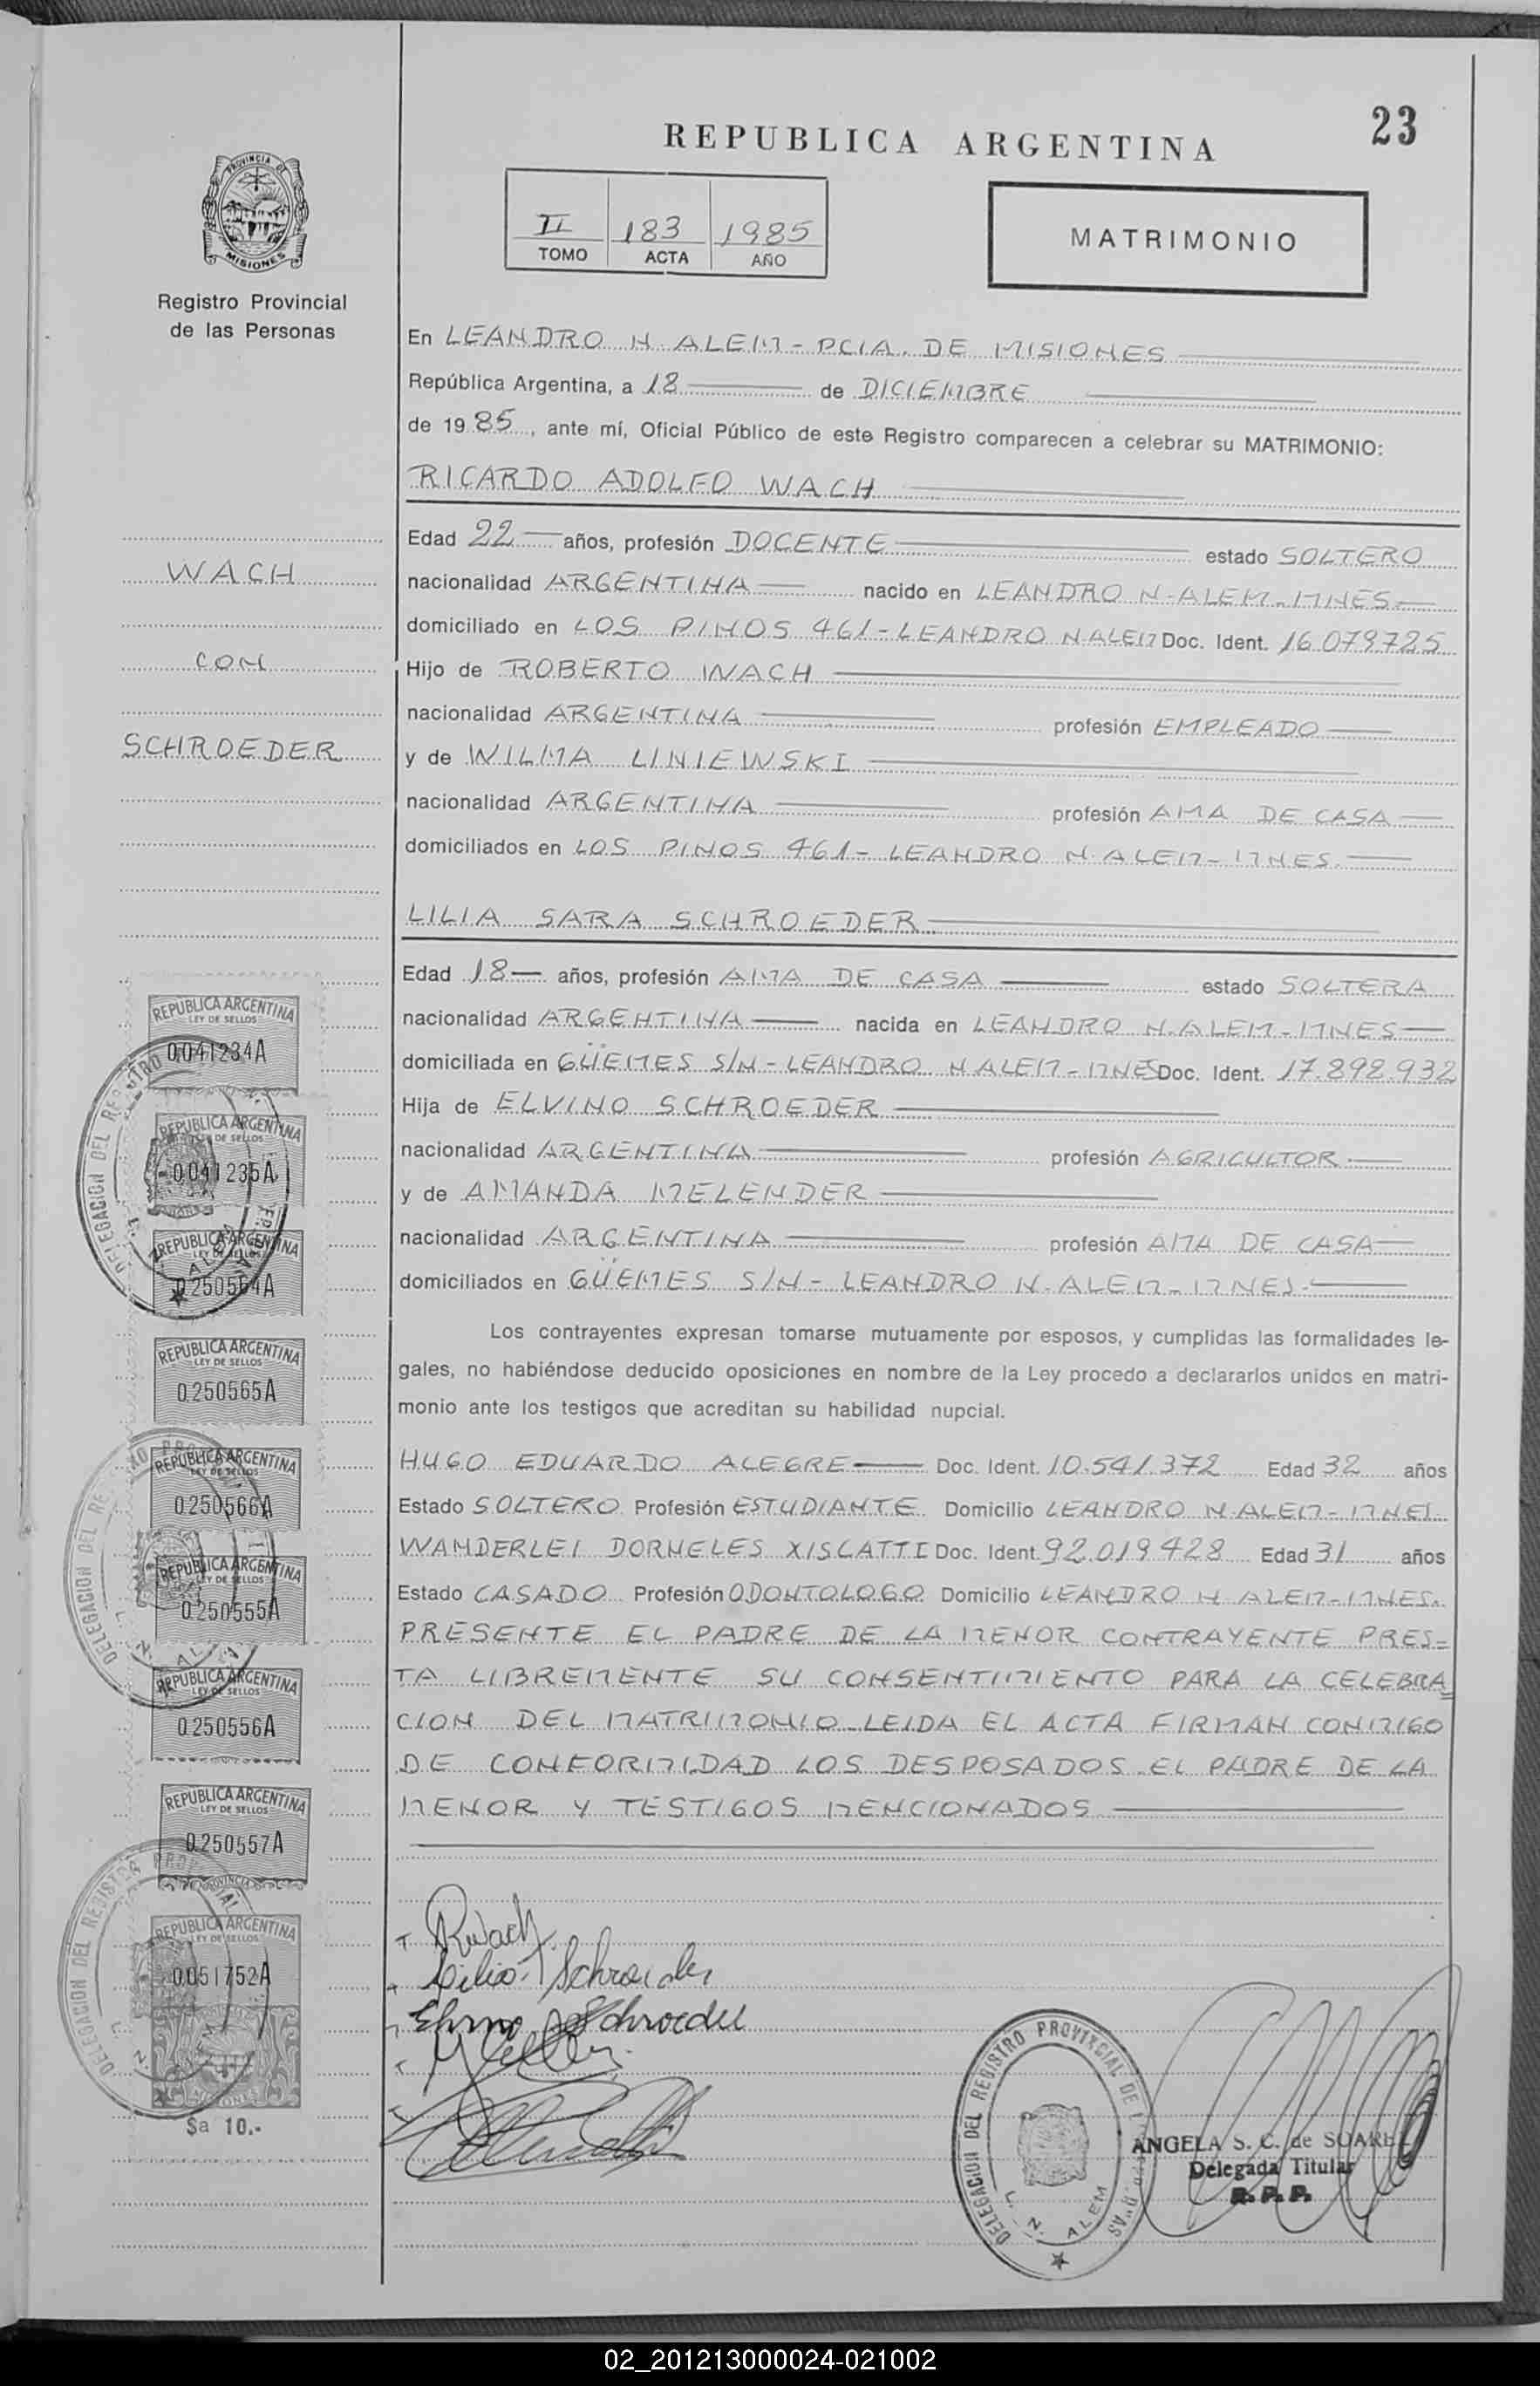 23
REPUBLICA ARGENTINA
PROVINCIA DE
MISIONES
Registro Provincial
de las Personas
II 183 1985
TOMO ACTA AÑO
MATRIMONIO
En LEANDRO N. ALEM - PCIA. DE MISIONES
República Argentina, a 18 de DICIEMBRE
de 1985, ante mí, Oficial Público de este Registro comparecen a celebrar su MATRIMONIO:
RICARDO ADOLFO WACH
Edad 22 años, profesión DOCENTE estado SOLTERO
nacionalidad ARGENTINA nacido en LEANDRO N. ALEM - MNES
domiciliado en LOS PINOS 461 - LEANDRO N ALEM Doc. Ident. 16.079.725
Hijo de ROBERTO WACH
nacionalidad ARGENTINA profesión EMPLEADO
y de WILMA LINIEWSKI
nacionalidad ARGENTINA profesión AMA DE CASA
domiciliados en LOS PINOS 461 - LEANDRO N. ALEM - MNES.
WACH
CON
SCHROEDER
LILIA SARA SCHROEDER
Edad 18 años, profesión AMA DE CASA estado SOLTERA
nacionalidad ARGENTINA nacida en LEANDRO N. ALEM - MNES
domiciliada en GÜEMES S/N - LEANDRO N ALEM - MNES Doc. Ident. 17.898.932
Hija de ELVINO SCHROEDER
nacionalidad ARGENTINA profesión AGRICULTOR
y de AMANDA MELENDER
nacionalidad ARGENTINA profesión AMA DE CASA
domiciliados en GÜEMES S/N - LEANDRO N. ALEM - MNES.
Los contrayentes expresan tomarse mutuamente por esposos, y cumplidas las formalidades le-
gales, no habiéndose deducido oposiciones en nombre de la Ley procedo a declararlos unidos en matri-
monio ante los testigos que acreditan su habilidad nupcial.
HUGO EDUARDO ALEGRE Doc. Ident. 10.541.372 Edad 32 años
Estado SOLTERO Profesión ESTUDIANTE Domicilio LEANDRO N. ALEM - MNES
WANDERLEI DORNELES XISCATTI Doc. Ident. 92.019428 Edad 31 años
Estado CASADO Profesión ODONTOLOGO Domicilio LEANDRO N ALEM - MNES.
PRESENTE EL PADRE DE LA MENOR CONTRAYENTE PRES=
TA LIBREMENTE SU CONSENTIMIENTO PARA LA CELEBRA=
CION DEL MATRIMONIO - LEIDA EL ACTA FIRMAN CONMIGO
DE CONFORMIDAD LOS DESPOSADOS EL PADRE DE LA
MENOR Y TESTIGOS MENCIONADOS
REPUBLICA ARGENTINA
LEY DE SELLOS
0.041234A
REPUBLICA ARGENTINA
LEY DE SELLOS
0.041235A
REPUBLICA ARGENTINA
LEY DE SELLOS
0.250564A
REPUBLICA ARGENTINA
LEY DE SELLOS
0.250565A
REPUBLICA ARGENTINA
LEY DE SELLOS
0.250566A
REPUBLICA ARGENTINA
LEY DE SELLOS
0.250555A
REPUBLICA ARGENTINA
LEY DE SELLOS
0.250556A
REPUBLICA ARGENTINA
LEY DE SELLOS
0.250557A
REPUBLICA ARGENTINA
LEY DE SELLOS
0.051752A
MISIONES
$a 10.-
RWach
Lilia Schroeder
Elvino Schroeder
DELEGACION DEL REGISTRO PROVINCIAL DE
L. N. ALEM
ANGELA S. C. de SOAREZ
Delegada Titular
R. P. P.
02_201213000024-021002